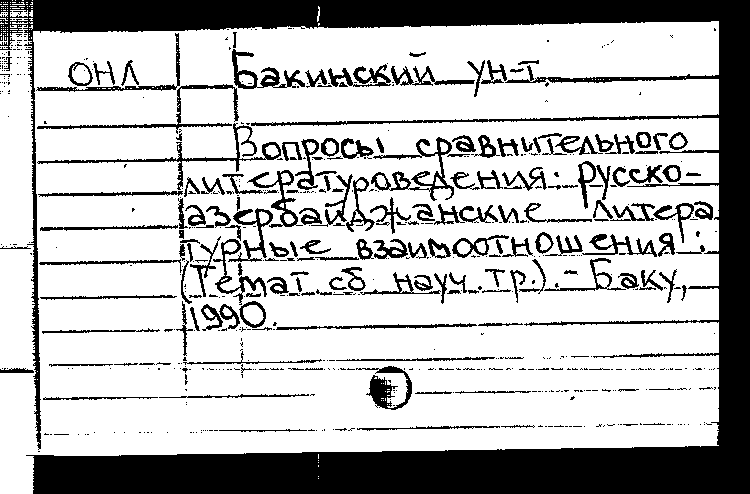 ОНЛ Бакинский ун-т.
Вопросы сравнительного
литературоведения: Русско-
азербайджанские литера
турные взаимоотношения :
(Темат. сб. науч. тр.). - Баку,
1990.